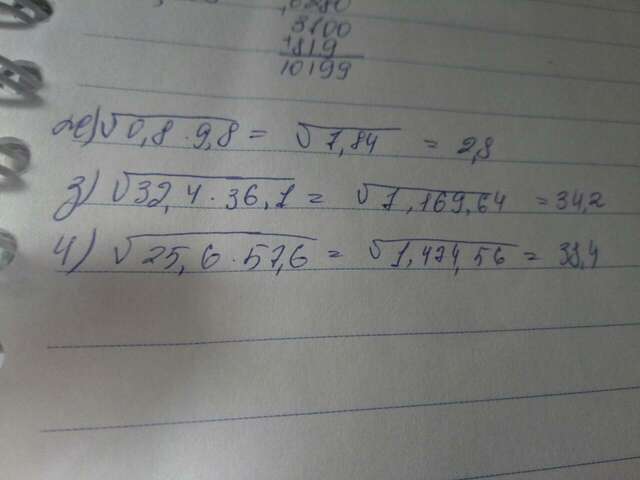 6280
8100
1819
10199
ж) √0,8 · 9,8 = √7,84 = 2,8
з) √32,4 · 36,1 = √1,169,64 = 34,2
и) √25,6 · 57,6 = √1,474,56 = 38,4